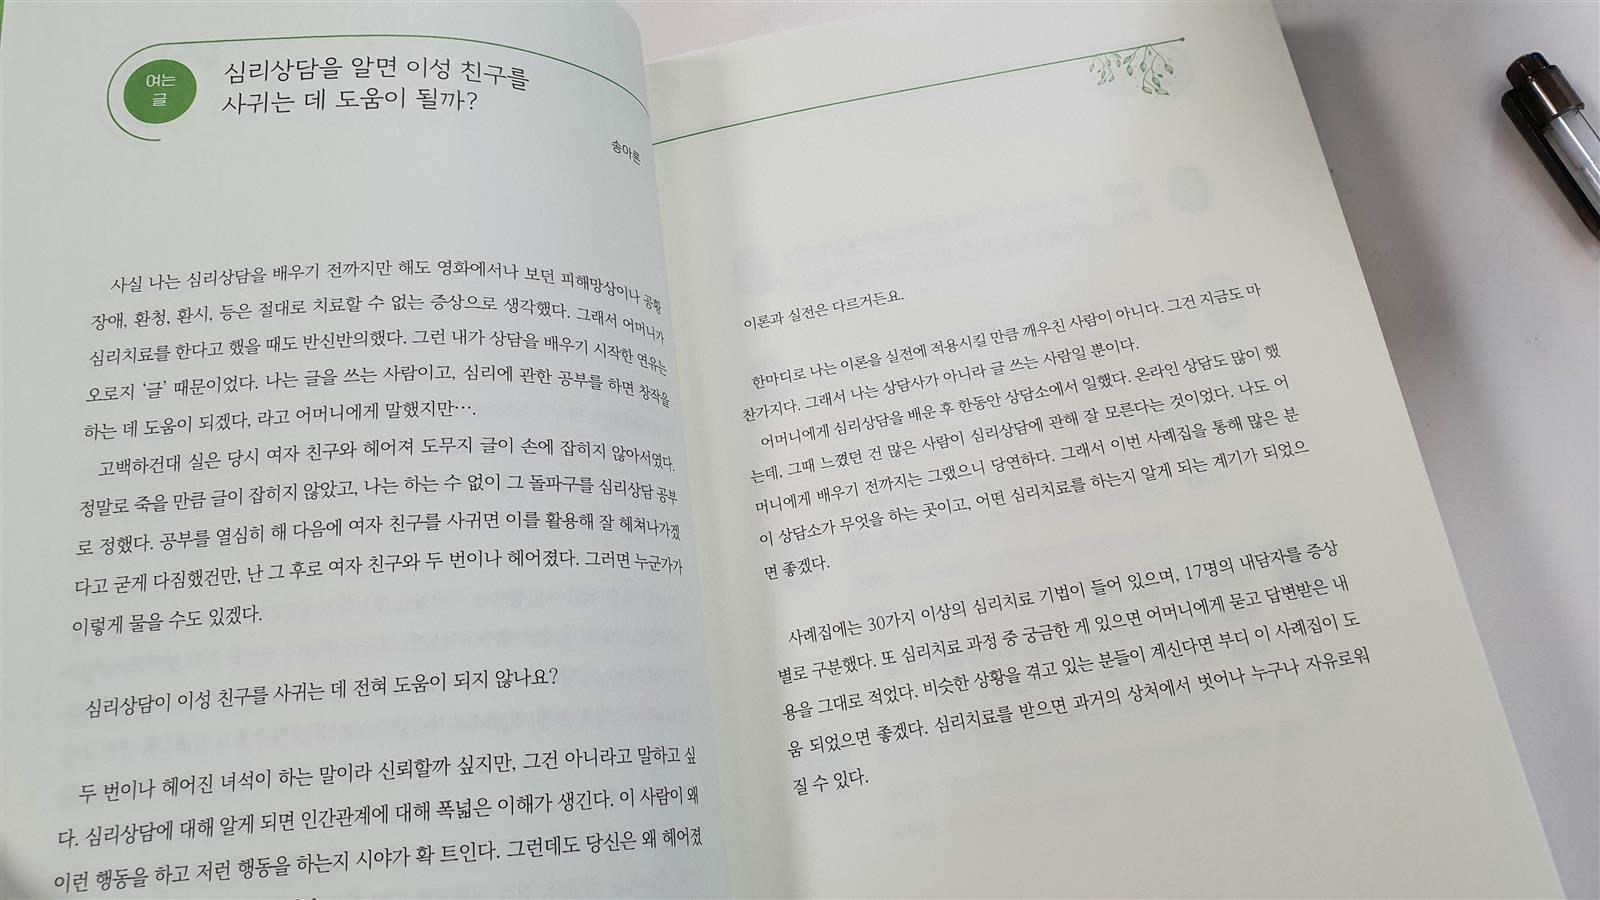 여는
글
심리상담을 알면 이성 친구를
사귀는 데 도움이 될까?
송아론
사실 나는 심리상담을 배우기 전까지만 해도 영화에서나 보던 피해망상이나 공황
장애, 환청, 환시, 등은 절대로 치료할 수 없는 증상으로 생각했다. 그래서 어머니가
심리치료를 한다고 했을 때도 반신반의했다. 그런 내가 상담을 배우기 시작한 연유는
오로지 ‘글’ 때문이었다. 나는 글을 쓰는 사람이고, 심리에 관한 공부를 하면 창작을
하는 데 도움이 되겠다, 라고 어머니에게 말했지만….
고백하건대 실은 당시 여자 친구와 헤어져 도무지 글이 손에 잡히지 않아서였다.
정말로 죽을 만큼 글이 잡히지 않았고, 나는 하는 수 없이 그 돌파구를 심리상담 공부
로 정했다. 공부를 열심히 해 다음에 여자 친구를 사귀면 이를 활용해 잘 헤쳐나가겠
다고 굳게 다짐했건만, 난 그 후로 여자 친구와 두 번이나 헤어졌다. 그러면 누군가가
이렇게 물을 수도 있겠다.
심리상담이 이성 친구를 사귀는 데 전혀 도움이 되지 않나요?
두 번이나 헤어진 녀석이 하는 말이라 신뢰할까 싶지만, 그건 아니라고 말하고 싶
다. 심리상담에 대해 알게 되면 인간관계에 대해 폭넓은 이해가 생긴다. 이 사람이 왜
이런 행동을 하고 저런 행동을 하는지 시야가 확 트인다. 그런데도 당신은 왜 헤어졌
이론과 실전은 다르거든요.
한마디로 나는 이론을 실전에 적용시킬 만큼 깨우친 사람이 아니다. 그건 지금도 마
찬가지다. 그래서 나는 상담사가 아니라 글 쓰는 사람일 뿐이다.
어머니에게 심리상담을 배운 후 한동안 상담소에서 일했다. 온라인 상담도 많이 했
는데, 그때 느꼈던 건 많은 사람이 심리상담에 관해 잘 모른다는 것이었다. 나도 어
머니에게 배우기 전까지는 그랬으니 당연하다. 그래서 이번 사례집을 통해 많은 분
이 상담소가 무엇을 하는 곳이고, 어떤 심리치료를 하는지 알게 되는 계기가 되었으
면 좋겠다.
사례집에는 30가지 이상의 심리치료 기법이 들어 있으며, 17명의 내담자를 증상
별로 구분했다. 또 심리치료 과정 중 궁금한 게 있으면 어머니에게 묻고 답변받은 내
용을 그대로 적었다. 비슷한 상황을 겪고 있는 분들이 계신다면 부디 이 사례집이 도
움 되었으면 좋겠다. 심리치료를 받으면 과거의 상처에서 벗어나 누구나 자유로워
질 수 있다.